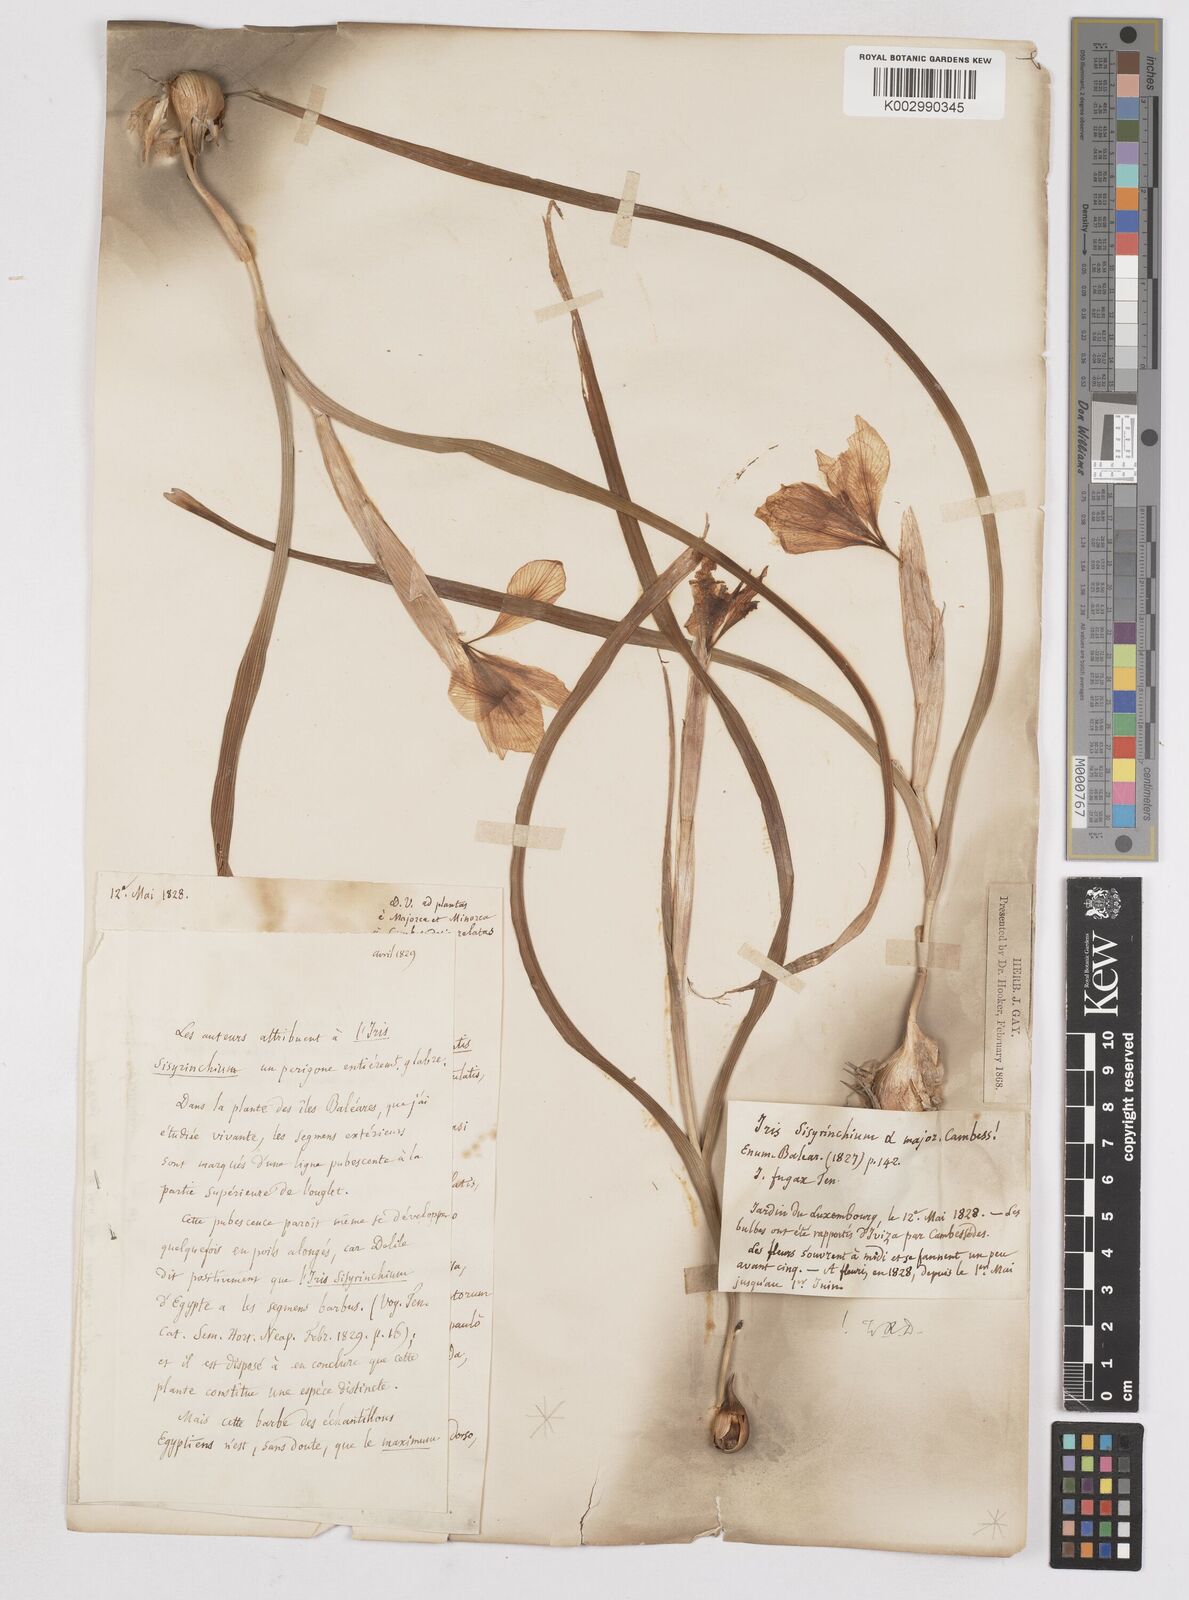 ROYAL BOTANIC GARDENS KEW
K002990345
12e. Mai 1828.
D. V. ad plantas
è Majorca et Minorca
relatas
avril 1829
Les auteurs attribuent à l'Iris
Sisyrinchium un perigone entièremt. glabre.
Dans la plante des îles Baléares, que j'ai
étudiée vivante, les segmens extérieurs
sont marqués d'une ligne pubescente à la
partie supérieure de l'onglet.
Cette pubescence paroît même se développer
quelquefois en poils alongés, car Delile
dit positivement que l'Iris Sisyrinchium
d'Egypte a les segmens barbus. (Voy. Ten.
Cat. Sem. Hort. Neap. Febr. 1829. p. 16);
et il est disposé à en conclure que cette
plante constitue une espèce distincte.
Mais cette barbe des échantillons
Egyptiens n'est, sans doute, que le maximum
ulatis,
latis,
torum
paulò
dorso,
Iris Sisyrinchium α major. Cambess!
Enum. Balear. (1827) p. 142.
I. fugax Ten.
Jardin du Luxembourg, le 12e. Mai 1828. — Les
bulbes ont été rapportés d'Iviza par Cambessèdes.
Les fleurs s'ouvrent à midi et se fannent un peu
avant cinq. — A fleuri, en 1828, depuis le 1er. Mai
jusqu'au 1er. Juin.
HERB. J. GAY.
Presented by Dr. Hooker, February 1868.
inches
centimeters
Density
Don Williams
copyright reserved
M000767
Kew
Royal Botanic Gardens
0 1 2 3 4 5 6 7 8 9 10
cm